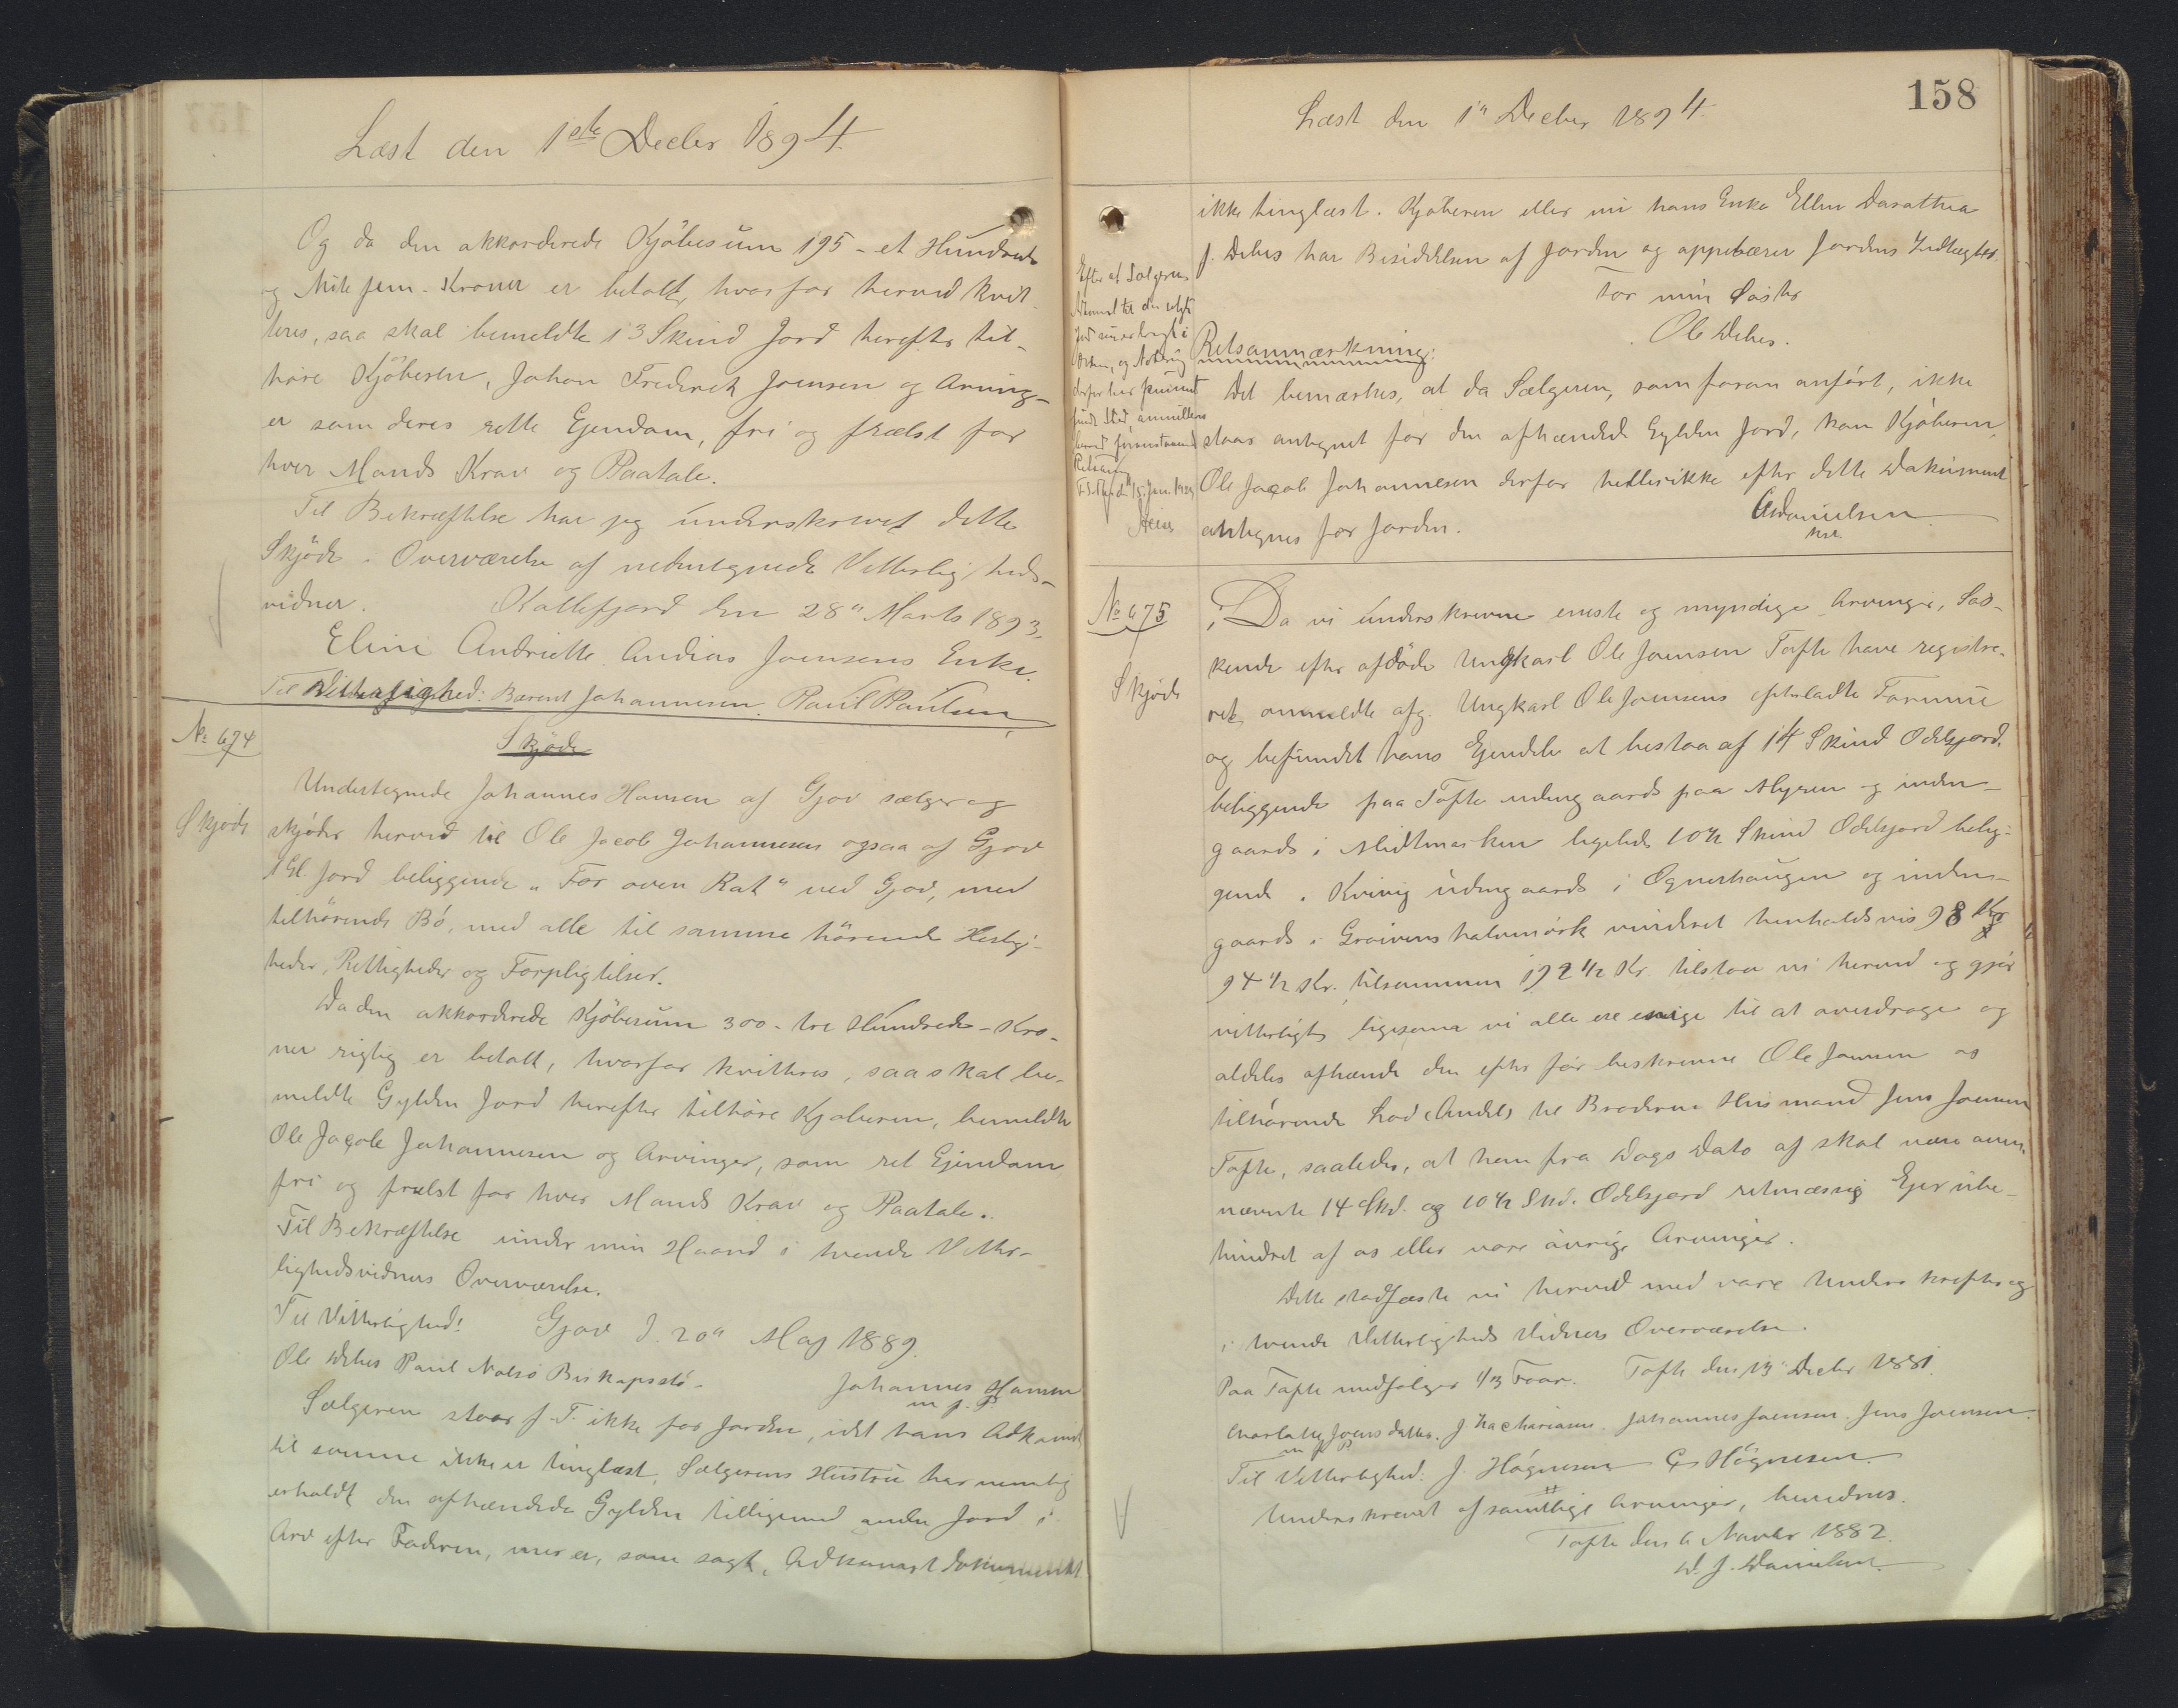 Læst den 1ste Decbr 1894.
Og da den akkorderede Kjøbesum 195 - et Hundrede
og Niti fem - Kroner er betalt, hvorfor herved kvit-
teres, saa skal bemeldte 13 Skind Jord herefter til-
høre Kjøberen, Johan Frederik Joensen og Arving-
er som deres rette Ejendom, fri og frælst for
hver Mands Krav og Paatale.
Til Bekræftelse har jeg underskrevet dette
Skjøde i Overværelse af undertegnede Vitterligheds-
vidner. Kollefjord den 28" Marts 1893.
Eline Andriette Andias Joensens Enke.
Til Vitterlighed: Barent Johannesen. Poul Poulsen
No 674
Skjøde
Skjøde
Undertegnede Johannes Hansen af Gjov sælger og
skjøder herved til Ole Jacob Johannesen ogsaa af Gjov
1 Gl. Jord beliggende "For oven Rak" ved Gjov, med
tilhørende Bø, med alle til samme hørende Herlig-
heder, Rettigheder og Forpligtelser.
Da den akkorderede Kjøbesum 300 - tre Hundrede - Kro-
ner rigtig er betalt, hvorfor kvitteres, saa skal be-
meldte Gylden Jord herefter tilhøre Kjøberen, bemeldte
Ole Jacob Johannesen og Arvinger, som ret Ejendom,
fri og frælst for hver Mands Krav og Paatale.
Til Bekræftelse under min Haand i tvende Vitter-
lighedsvidners Overværelse.
Til Vitterlighed: Gjov d. 20" Maj 1889.
Ole Debes Poul Nolsø Biskopsstø - Johannes Hansen
m. f. P.
Sælgeren staar f. T. ikke for Jorden, idet hans Adkomst
til samme ikke er tinglæst. Sælgerens Hustru har nemlig
erholdt den afhændede Gylden tilligemed anden Jord i
Arv efter Faderen, men er, som sagt, Adkomst dokumentet
158
Læst den 1" Decbr 1894.
ikke tinglæst. Kjøberen eller nu hans Enke Ellen Darathea
f. Debes har Besiddelsen af Jorden og oppebærer Jordens Indtægter.
For min Søster
Ole Debes.
Efter at Sælgeren
Jord nu
og
derfor har
fundet Sted, annulleres
herved foranstaaende
Jan. 1929
Retsanmærkning:
Det bemærkes, at da Sælgeren, som foran anført, ikke
staar antegnet for den afhændede Gylden Jord, kan Kjøberen,
Ole Jacob Johannesen derfor hellerikke efter dette Dokument
antegnes for Jorden.
Danielsen
kst.
No 675
Skjøde
Da vi underskrevne eneste og myndige Arvinger, Søs-
kende efter afdøde Ungkarl Ole Joensen Tofte have registre-
ret ommeldte afg. Ungkarl Ole Joensens efterladte Formue
og befundet hans Ejendele at bestaa af 14 Skind Odelsjord,
beliggende paa Tofte udengaards paa Myren og inden-
gaards i Midtmarken ligeledes 10½ Skind Odelsjord belig-
gende i Kvivig udengaards i Ognerhaugen og inden-
gaards i vurderet henholdsvis 98 Kr
94½ Kr. tilsammen 192½ Kr. tilstaa vi herved og gjør
vitterligt ligesom vi alle ere enige til at overdrage og
aldeles afhænde den efter før beskrevne Ole Joensen os
tilhørende Lod (Andel) til Broderen Husmand Jens Joensen
Tofte, saaledes, at han fra Dags Dato af skal være oven-
nævnte 14 Skd. og 10½ Skd. Odelsjord retmæssig Ejer ube-
hindret af os eller vore øvrige Arvinger.
Dette stadfæste vi herved med vore Underskrifter og
i tvende Vitterligheds Vidners Overværelse.
Paa Tofte medfølger 1/3 Faar. Tofte den 13" Decbr 1881.
Joensdatter. J. Zachariasen. Johannes Joensen. Jens Joensen.
m f P.
Til Vitterlighed: J. Høgnesen G. Høgnesen.
Underskrevet af samtlige Arvinger, bevidnes.
Tofte den 6 Novbr 1882.
D. J. Danielsen.